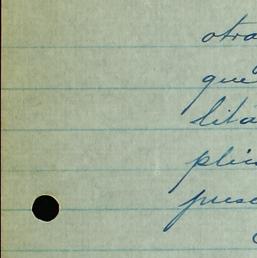 otra
que
lita
plic
prese